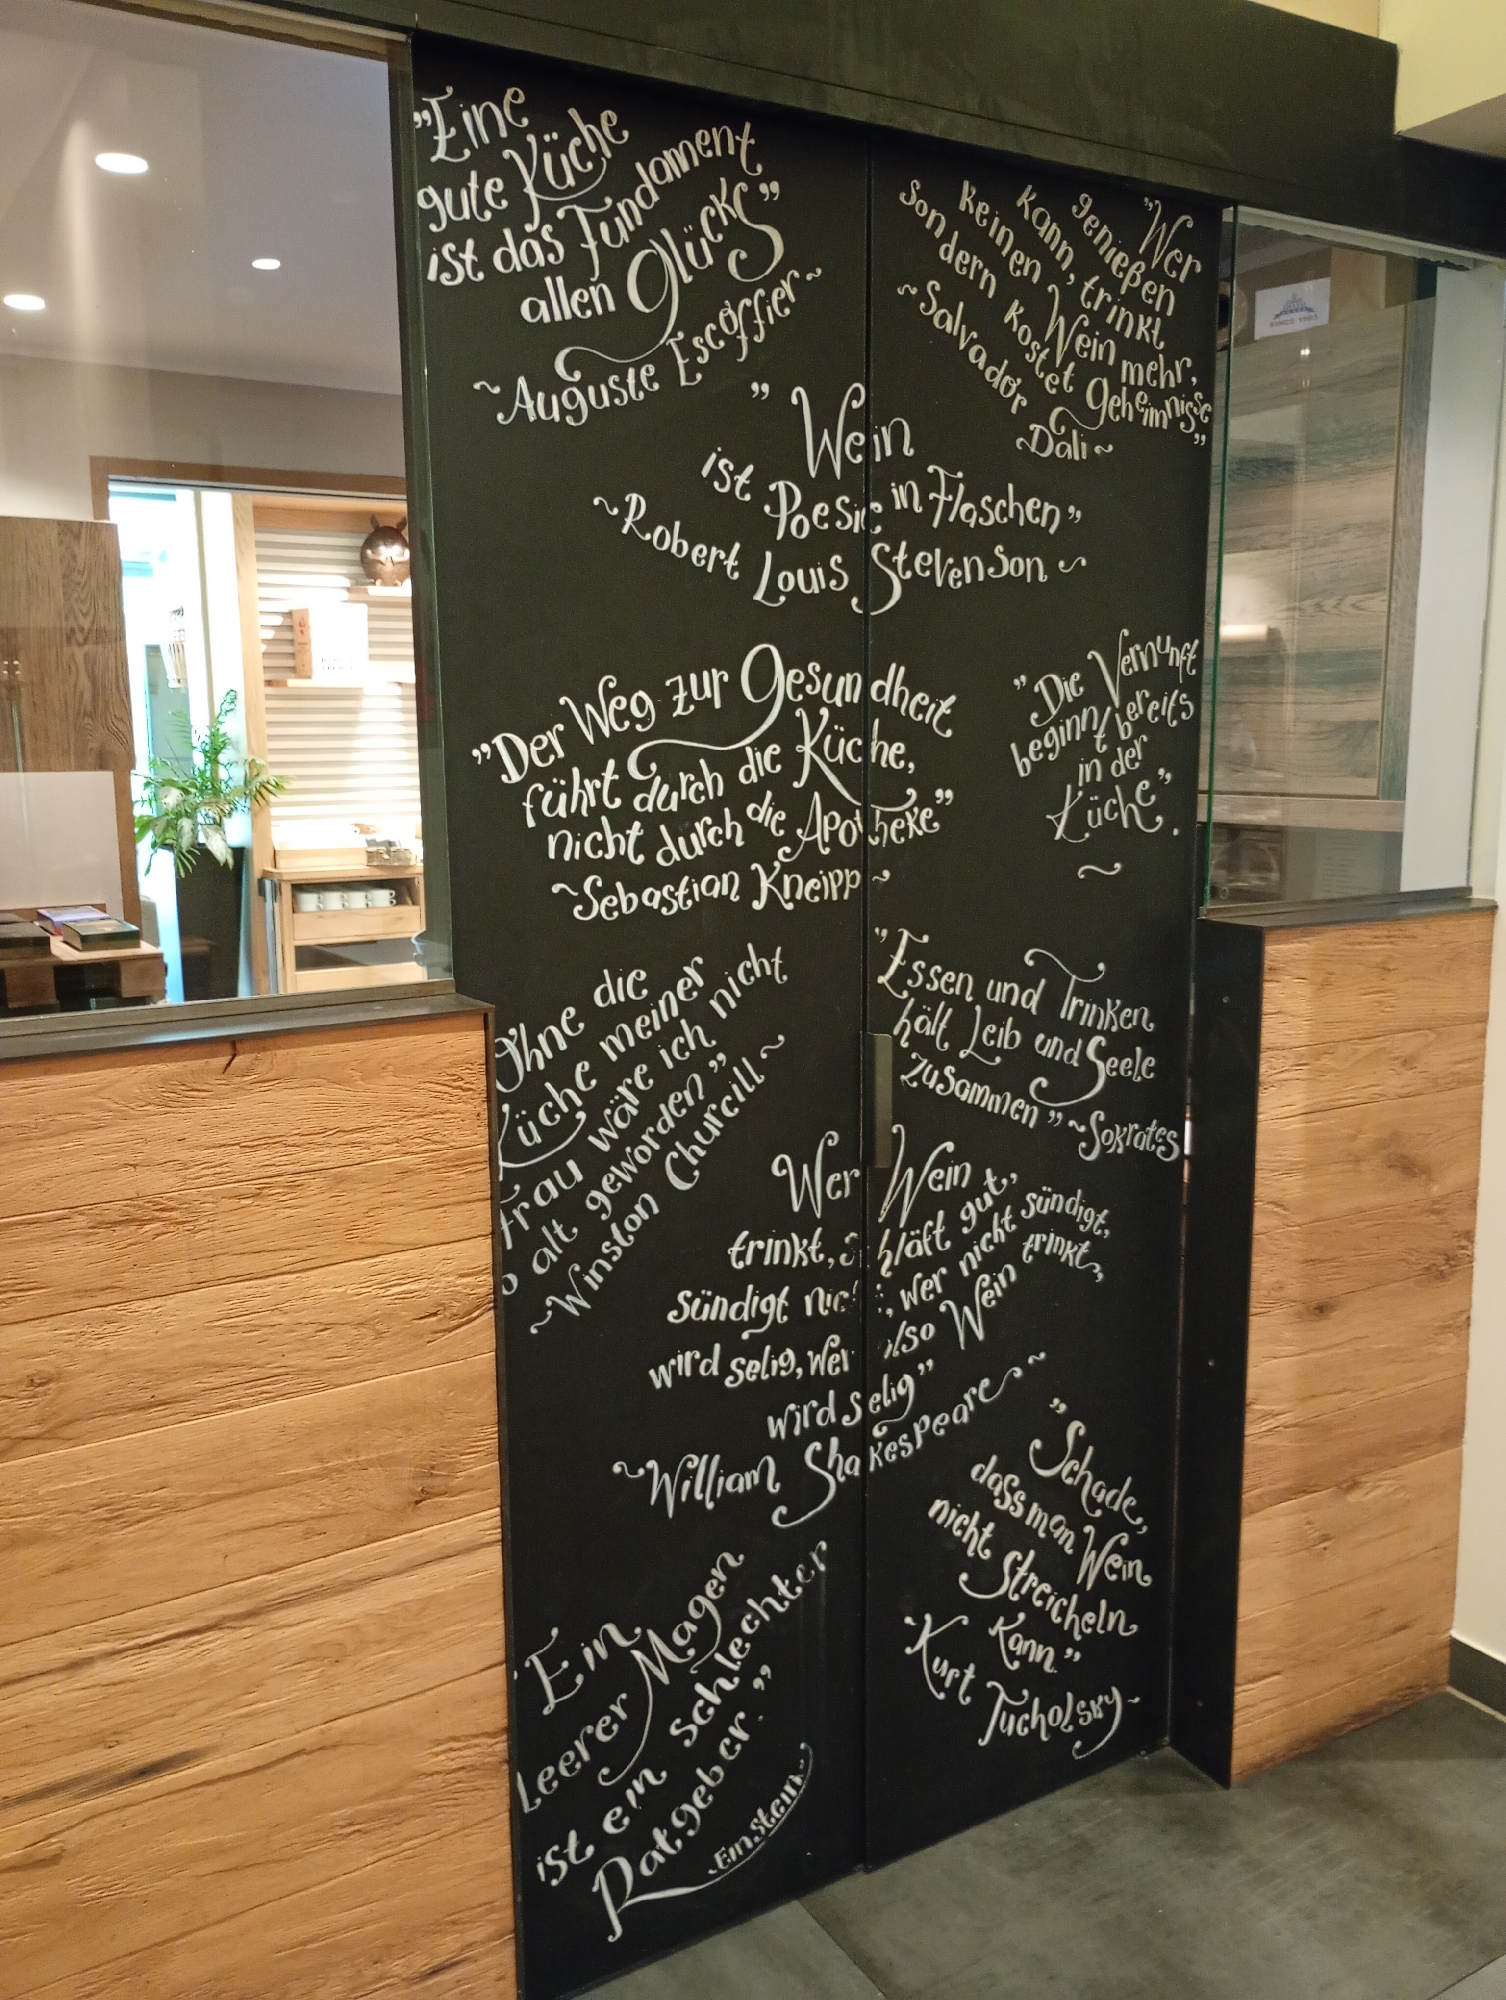 „Eine
gute Küche
ist das Fundament
allen Glücks”
~Auguste Escoffier~
"Wer
genießen
kann, trinkt
keinen Wein mehr,
sondern kostet Geheimnisse”
~Salvador
Dali~
” Wein
ist Poesie in Flaschen”
~Robert Louis Stevenson~
”Der Weg zur Gesundheit
führt durch die Küche,
nicht durch die Apotheke”
~Sebastian Kneipp~
”Die Vernunft
beginnt bereits
in der
Küche”.
~
Ohne die
Küche meiner
Frau wäre ich nicht
so alt geworden”
~Winston Churcill~
"Essen und Trinken
hält Leib und Seele
zusammen” ~Sokrates
Wer Wein
trinkt, schläft gut,
sündigt nicht, wer nicht sündigt,
wird selig, wer also Wein trinkt,
wird selig”
~William Shakespeare~
"Schade,
dass man Wein
nicht Streicheln
Kann”
~Kurt Tucholsky~
Ein
Leerer Magen
ist ein schlechter
Ratgeber.”
~Einstein~
SINCE